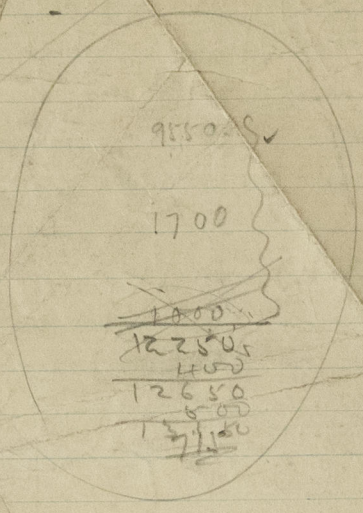 9550
1700
1000
12250
400
12650
500